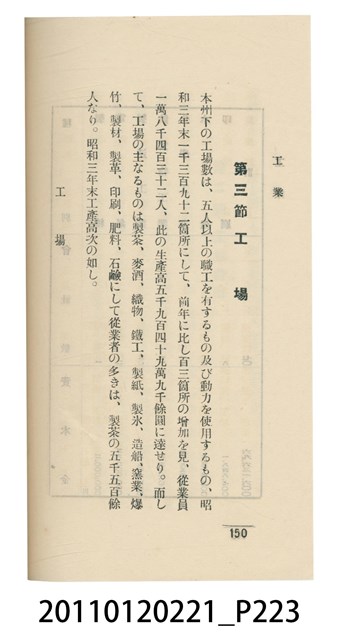 工業
第三節 工場
本州下の工場數は、五人以上の職工を有するもの及び動力を使用するもの、昭
和三年末一千三百九十二箇所にして、前年に比し百三箇所の增加を見、從業員
一萬八千四百三十二人、此の生產高五千九百四十九萬九千餘圓に達せり。而し
て、工場の主なるものは製茶、麥酒、織物、鐵工、製紙、製氷、造船、窯業、爆
竹、製材、製革、印刷、肥料、石鹼にして從業者の多きは、製茶の五千五百餘
人なり。昭和三年末工產高次の如し。
工場
150
20110120221_P223